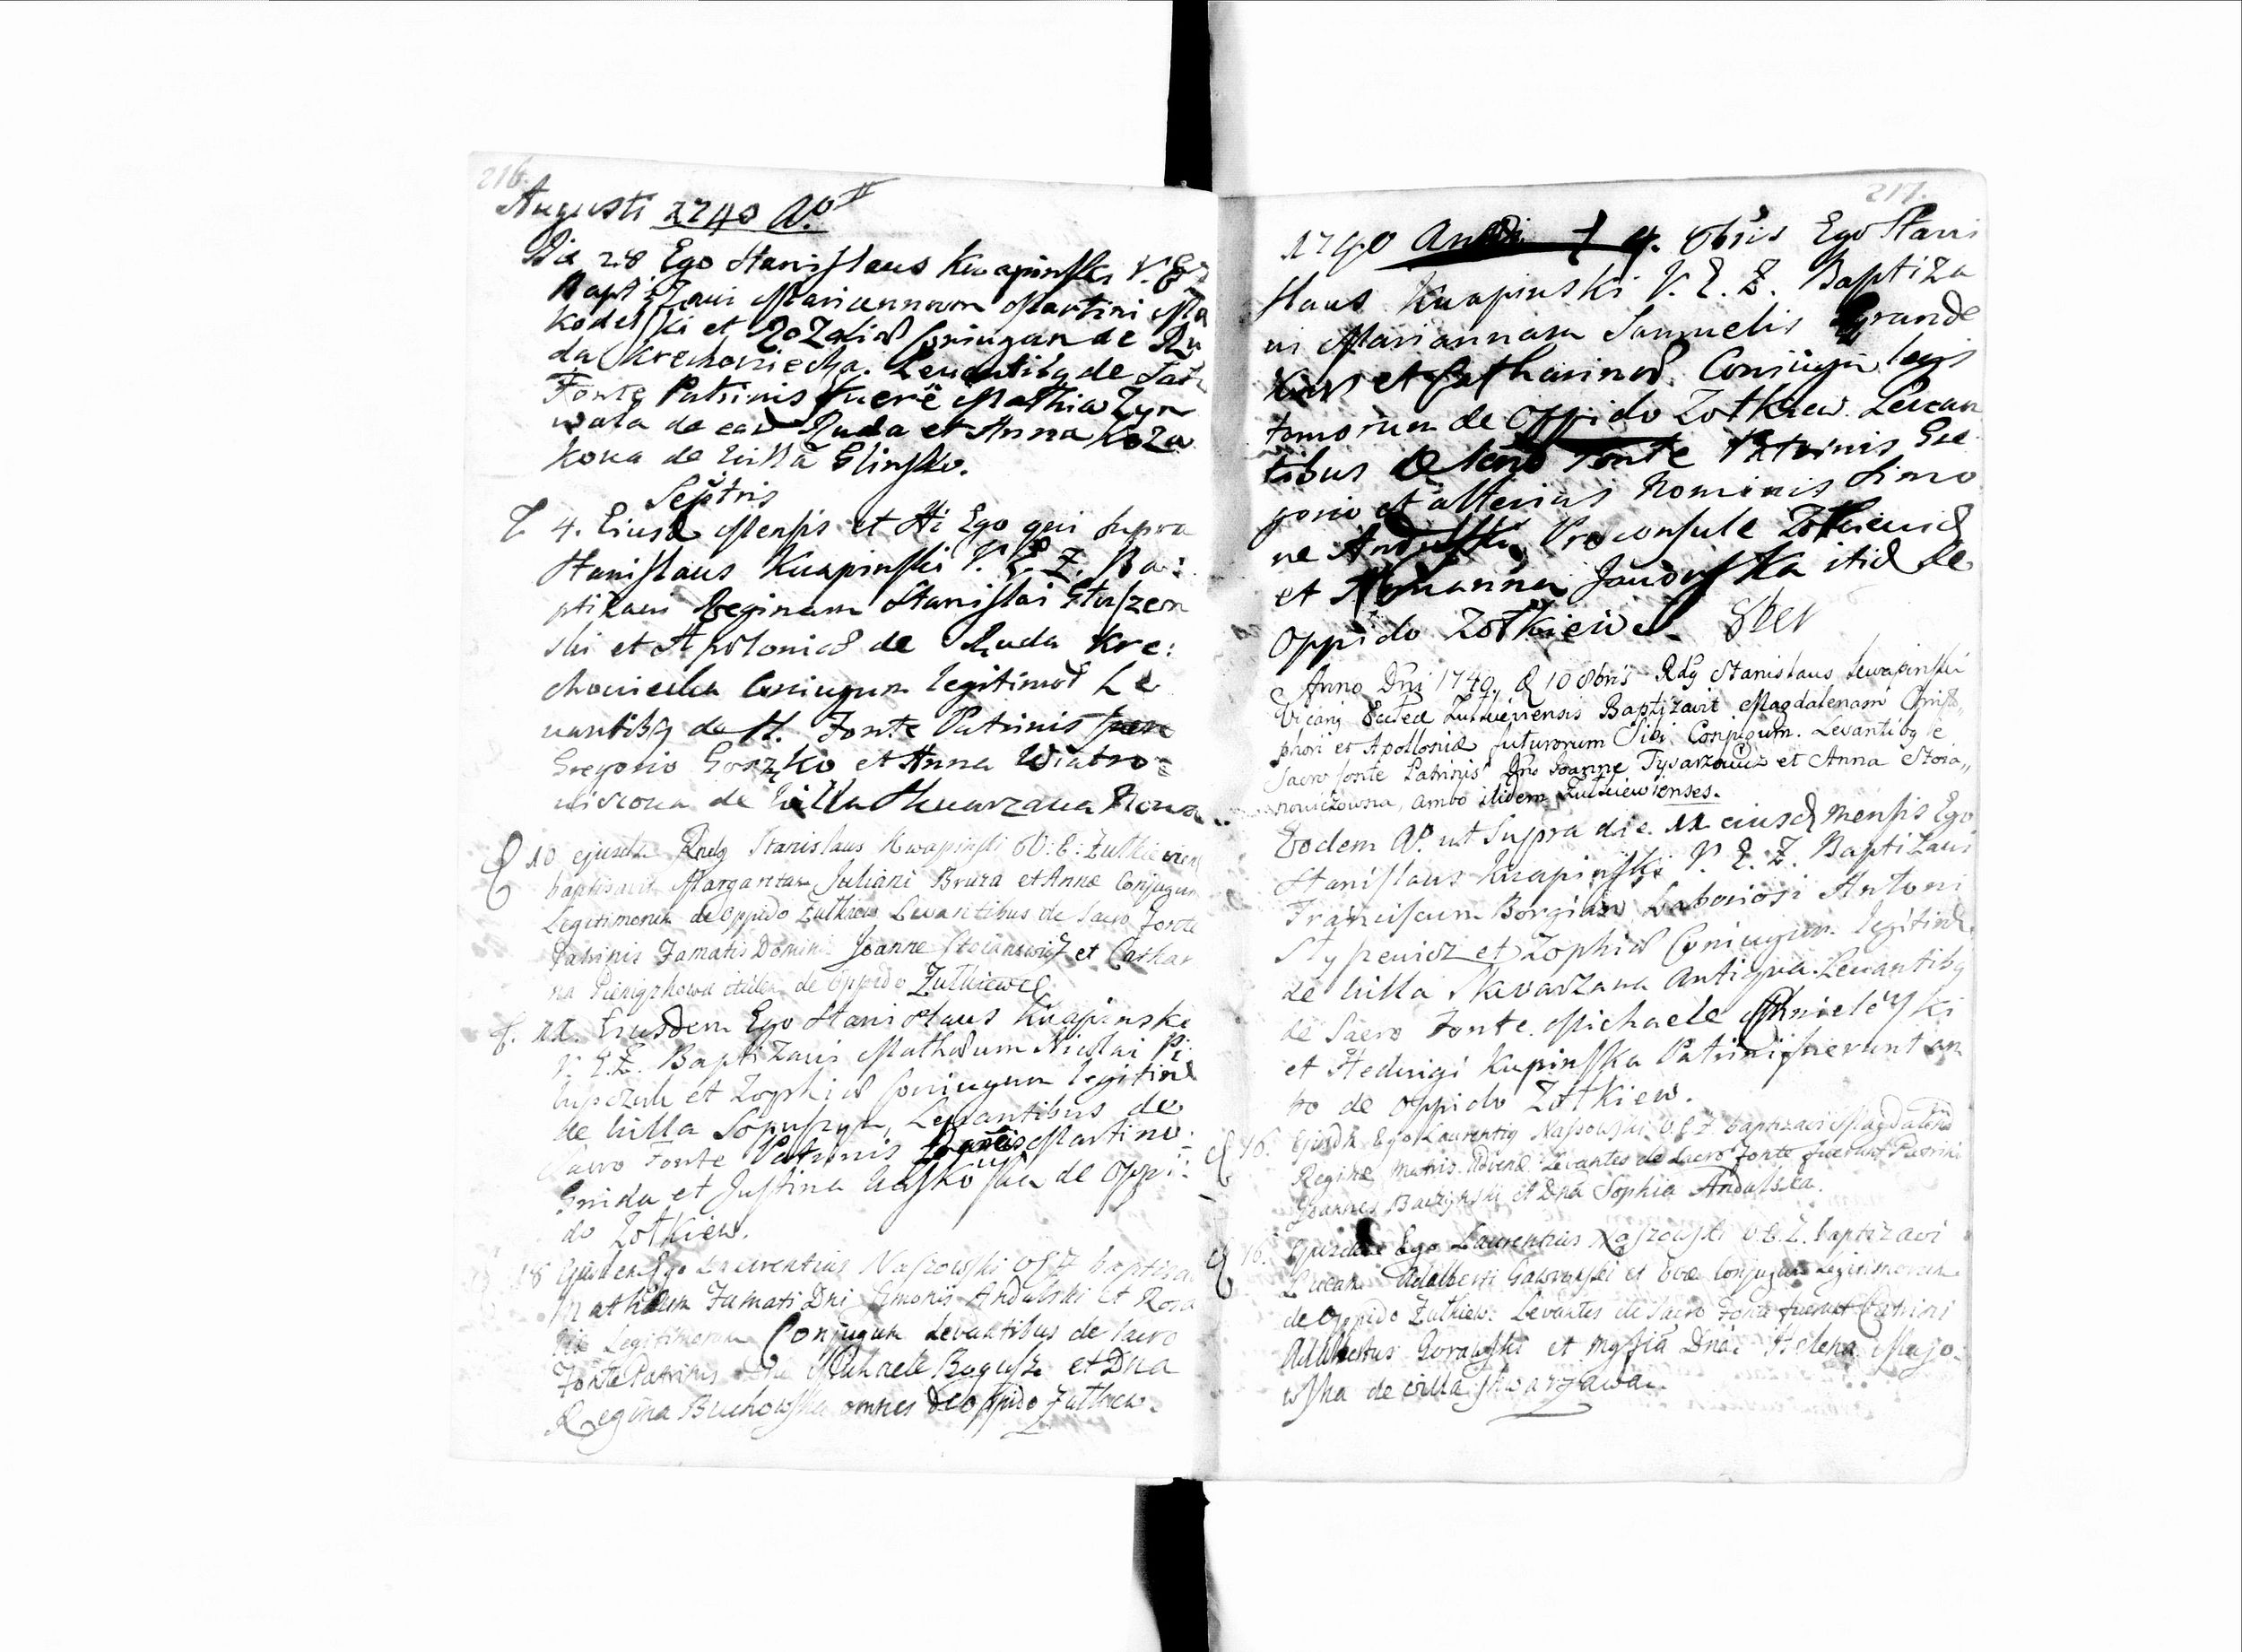 216.
Augusti 1740 Ao
Die 28 Ego Stanislaus Kwapinski V. E. Z
Baptizavi Mariannam Martini Ma
kodelski et Rozaliæ Coniugum de Ru
da Krechoviecka. Levantibq de Sacr
Fonte Patrinis fuere Mathia Zyn
wala de ead Ruda et Anna Koza
kowa de Villa Glinsko.
Septris
d 4. Eiusd Mensis et Ai Ego qui supra
Stanislaus Kwapinski V. E. Z. Ba:
ptizavi Reginam Stanislai
ski et Apoloniæ de Ruda Kre:
choviecka Coniugum legitimor Le
vantibq de S. Fonte Patrinis
Gregorio Goszko et Anna Wiatro=
wiczowa de Villa Skwarzawa Nova
d 10 ejusdem Rndq Stanislaus Kwapinski V: E: Zulkiewien
baptisavit Margaretam Juliani Brura et Annæ Conjugum
Legitimorum de Oppido Zulkiew Levantibus de Sacro Fonte
Patrinis Famatis Domini Joanne Stoianowicz et Cathar
na itidem de Oppido Zulkiew
d. 11. Eiusdem Ego Stanislaus Kwapinski
V. E. Z. Baptizavi Mathæum Nicolai Pi
et Zophiæ Coniugum legitim
de Villa Soposzyn, Levantibus de
Sacro Fonte Patrinis Martino
Gnida et Justina de Oppi:
do Zolkiew.
18 Ejusdem Ego Laurentius Naszowski V E Z baptisa
Mathæum Famati Dni Simonis Andalski et Rosa
liæ Legitimorum Conjugum Levantibus de Sacro
Fonte Patrinis Dno Michaele Bogusz et Dna
Regina Buchowska omnes de Oppido Zulkiew.
217.
1740 9. Obris Ego Stani
slaus Kwapinski V. E. Z. Baptiza
vi Mariannam Samuelis
et Catharinæ Coniugum legi
timorum de Oppido Zolkiew Levan
tibus de Sacro Fonte Patrinis Gre
gorio et alterius Nominis Simo
ne Andalski Proconsule Zolkievien
et Marianna itid de
Oppido Zolkiew
Anno Dni 1740, d 10 Obris Rdq Stanislaus Kwapinski
Vicariq Eccleæ Zulkievensis Baptizavit Magdalenam Christo,
phori et Apolloniæ futurorum Sibi Conjugum. Levantibq e
Sacro fonte Patrinis Dno Joanne et Anna Stoia,,
nowiczowna, ambo itidem Zulkiewienses.
Eodem Ao. ut Supra die 11 eiusd Mensis Ego
Stanislaus Kwapinski V. E. Z. Baptizavi
Franciscum Borgiam Laboriosi Antoni
Stypewicz et Zophiæ Coniugum legitim
de Villa Skwarzawa Antiqua. Levantibq
de Sacro Fonte Michaele
et Hedwigi Kupinska Patrini fuerunt am
bo de Oppido Zolkiew.
d 16. Ejusdem Ego Laurentiq Naszowski V. E Z baptizavi Magdalenã
Reginæ matris. Advenæ Levantes de Sacro Fonte fuerunt Patrini
Joannes Baczynski et Dna Sophia Andalska.
d 16. Ejusdem Ego Laurentius Naszowski V. E. Z. baptizavi
Lucam Adalberti Gaworski et Evæ Conjugum Legitimorum
de Oppido Zulkiew. Levantes de Sacro Fonte fuerunt Patrini
Adalbertus Gorawski et Dna Helena Majo=
wska de villa Skwarzawa.